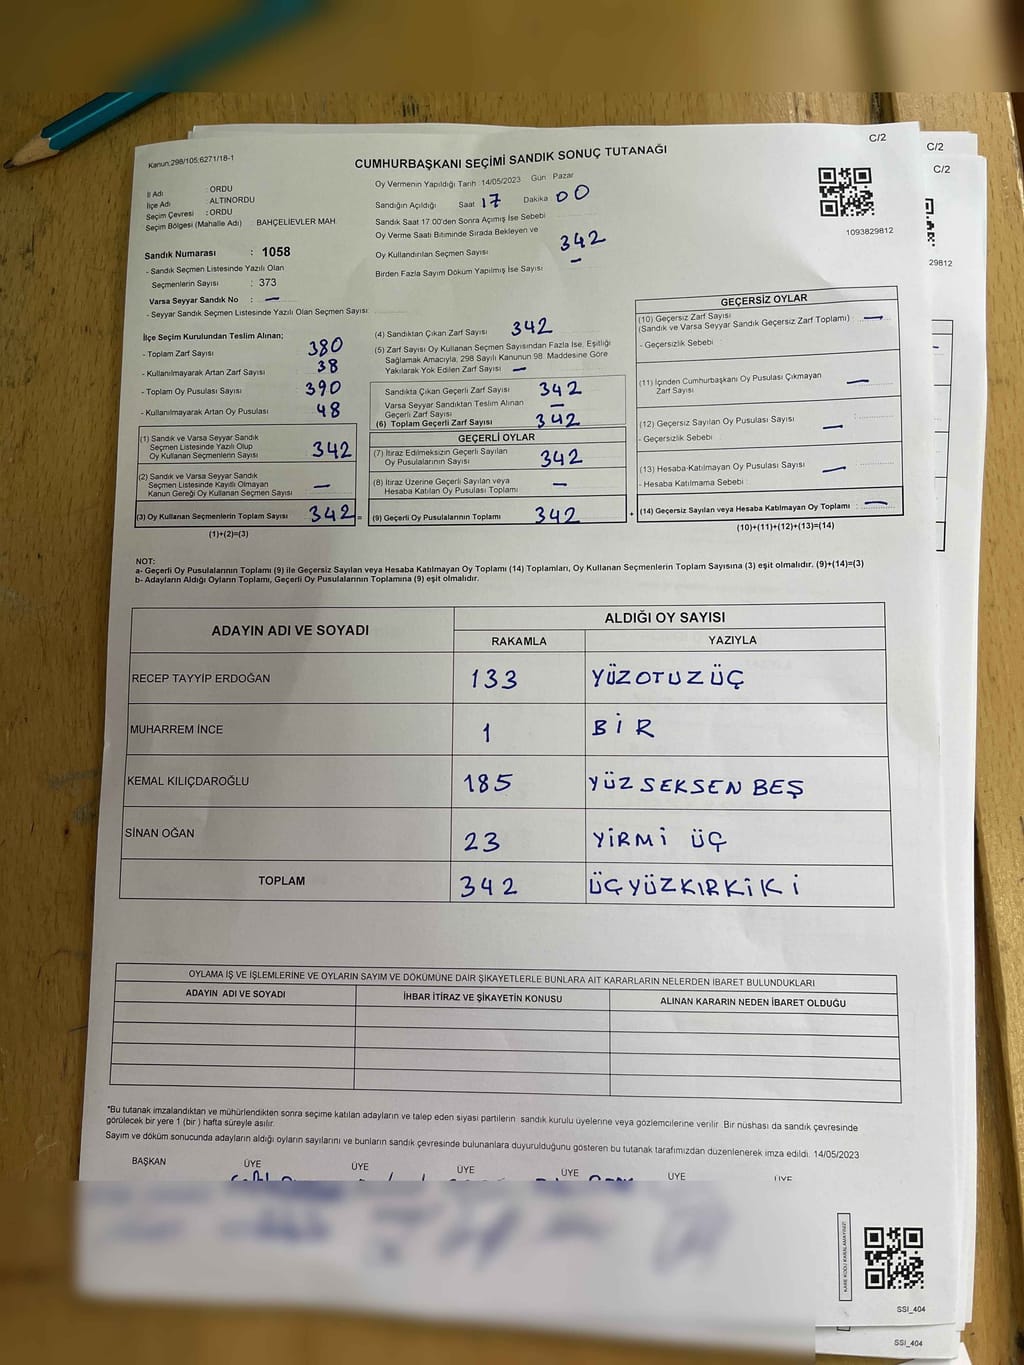 C/2
C/2
C/2
Kanun:298/105.6271/18-1
CUMHURBAŞKANI SEÇİMİ SANDIK SONUÇ TUTANAĞI
İl Adı : ORDU
İlçe Adı : ALTINORDU
Seçim Çevresi : ORDU
Seçim Bölgesi (Mahalle Adı) BAHÇELİEVLER MAH.
Sandık Numarası : 1058
- Sandık Seçmen Listesinde Yazılı Olan
Seçmenlerin Sayısı : 373
Varsa Seyyar Sandık No : —
- Seyyar Sandık Seçmen Listesinde Yazılı Olan Seçmen Sayısı:
Oy Vermenin Yapıldığı Tarih 14/05/2023 Gün Pazar
Sandığın Açıldığı Saat 17 Dakika 00
Sandık Saat 17.00'den Sonra Açımış İse Sebebi
Oy Verme Saati Bitiminde Sırada Bekleyen ve
Oy Kullandırılan Seçmen Sayısı 342
Birden Fazla Sayım Döküm Yapılmış İse Sayısı —
1093829812
29812
İlçe Seçim Kurulundan Teslim Alınan;
- Toplam Zarf Sayısı 380
- Kullanılmayarak Artan Zarf Sayısı 38
- Toplam Oy Pusulası Sayısı 390
- Kullanılmayarak Artan Oy Pusulası 48
(1) Sandık ve Varsa Seyyar Sandık
Seçmen Listesinde Yazılı Olup
Oy Kullanan Seçmenlerin Sayısı 342
(2) Sandık ve Varsa Seyyar Sandık
Seçmen Listesinde Kayıtlı Olmayan
Kanun Gereği Oy Kullanan Seçmen Sayısı —
(3) Oy Kullanan Seçmenlerin Toplam Sayısı 342 =
(1)+(2)=(3)
(4) Sandıktan Çıkan Zarf Sayısı 342
(5) Zarf Sayısı Oy Kullanan Seçmen Sayısından Fazla İse, Eşitliği
Sağlamak Amacıyla; 298 Sayılı Kanunun 98. Maddesine Göre
Yakılarak Yok Edilen Zarf Sayısı —
Sandıkta Çıkan Geçerli Zarf Sayısı 342
Varsa Seyyar Sandıktan Teslim Alınan
Geçerli Zarf Sayısı —
(6) Toplam Geçerli Zarf Sayısı 342
GEÇERLİ OYLAR
(7) İtiraz Edilmeksizin Geçerli Sayılan
Oy Pusulalarının Sayısı 342
(8) İtiraz Üzerine Geçerli Sayılan veya
Hesaba Katılan Oy Pusulası Toplamı —
(9) Geçerli Oy Pusulalarının Toplamı 342
+
GEÇERSİZ OYLAR
(10) Geçersiz Zarf Sayısı
(Sandık ve Varsa Seyyar Sandık Geçersiz Zarf Toplamı) —
- Geçersizlik Sebebi
(11) İçinden Cumhurbaşkanı Oy Pusulası Çıkmayan
Zarf Sayısı —
(12) Geçersiz Sayılan Oy Pusulası Sayısı —
- Geçersizlik Sebebi
(13) Hesaba Katılmayan Oy Pusulası Sayısı —
- Hesaba Katılmama Sebebi
(14) Geçersiz Sayılan veya Hesaba Katılmayan Oy Toplamı : —
(10)+(11)+(12)+(13)=(14)
NOT:
a- Geçerli Oy Pusulalarının Toplamı (9) ile Geçersiz Sayılan veya Hesaba Katılmayan Oy Toplamı (14) Toplamları, Oy Kullanan Seçmenlerin Toplam Sayısına (3) eşit olmalıdır. (9)+(14)=(3)
b- Adayların Aldığı Oyların Toplamı, Geçerli Oy Pusulalarının Toplamına (9) eşit olmalıdır.
ADAYIN ADI VE SOYADI
ALDIĞI OY SAYISI
RAKAMLA YAZIYLA
RECEP TAYYİP ERDOĞAN 133 YÜZOTUZÜÇ
MUHARREM İNCE 1 BİR
KEMAL KILIÇDAROĞLU 185 YÜZ SEKSEN BEŞ
SİNAN OĞAN 23 YİRMİ ÜÇ
TOPLAM 342 ÜÇYÜZKIRKİKİ
OYLAMA İŞ VE İŞLEMLERİNE VE OYLARIN SAYIM VE DÖKÜMÜNE DAİR ŞİKAYETLERLE BUNLARA AİT KARARLARIN NELERDEN İBARET BULUNDUKLARI
ADAYIN ADI VE SOYADI İHBAR İTİRAZ VE ŞİKAYETİN KONUSU ALINAN KARARIN NEDEN İBARET OLDUĞU
*Bu tutanak imzalandıktan ve mühürlendikten sonra seçime katılan adayların ve talep eden siyasi partilerin sandık kurulu üyelerine veya gözlemcilerine verilir. Bir nüshası da sandık çevresinde
görülecek bir yere 1 (bir) hafta süreyle asılır.
Sayım ve döküm sonucunda adayların aldığı oyların sayılarını ve bunların sandık çevresinde bulunanlara duyurulduğunu gösteren bu tutanak tarafımızdan düzenlenerek imza edildi. 14/05/2023
BAŞKAN ÜYE ÜYE ÜYE ÜYE ÜYE ÜYE
KARE KODU KARALAMAYINIZ!
SSI_404
SSI_404